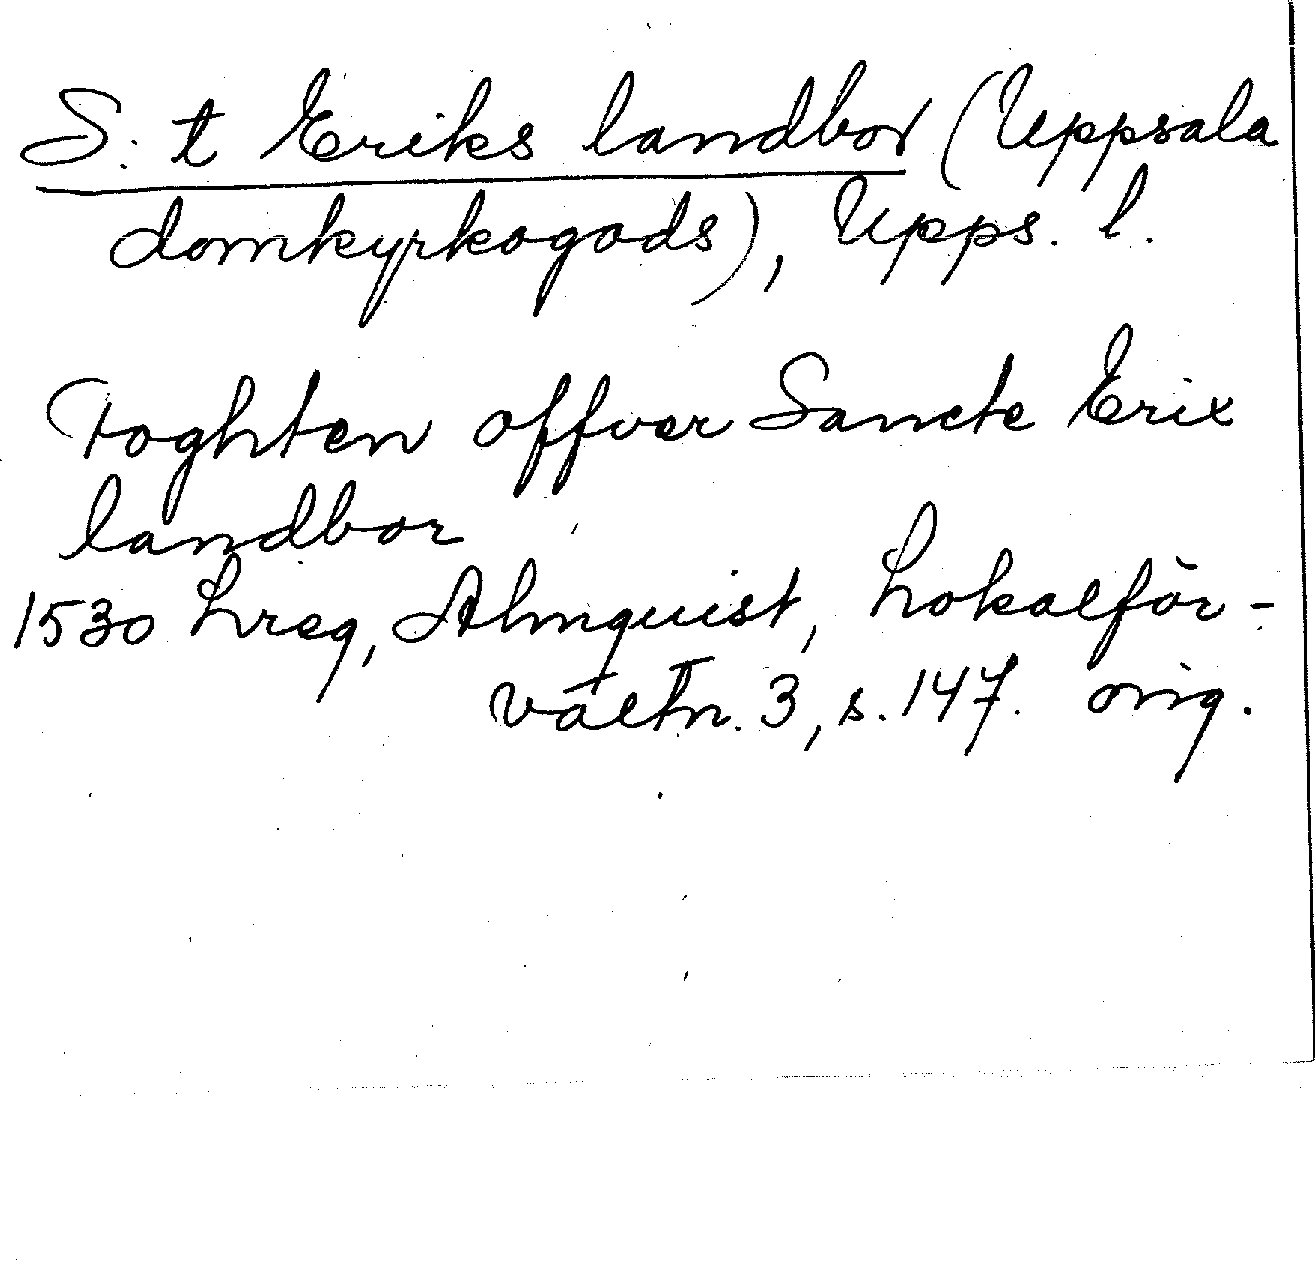 S:t Eriks landbor (Uppsala
domkyrkogods), Upps. l.
Foghten offver Sancte Erix
landbor
1530 Lreg, Almquist, Lokalför-
valtn. 3, s. 147. orig.